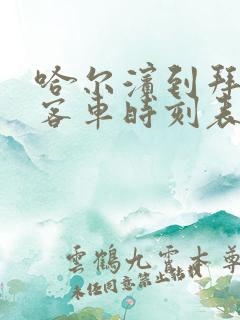 哈尔滨到拜
客車時刻表
雲鶴九霄本尊
未经同意禁止转载